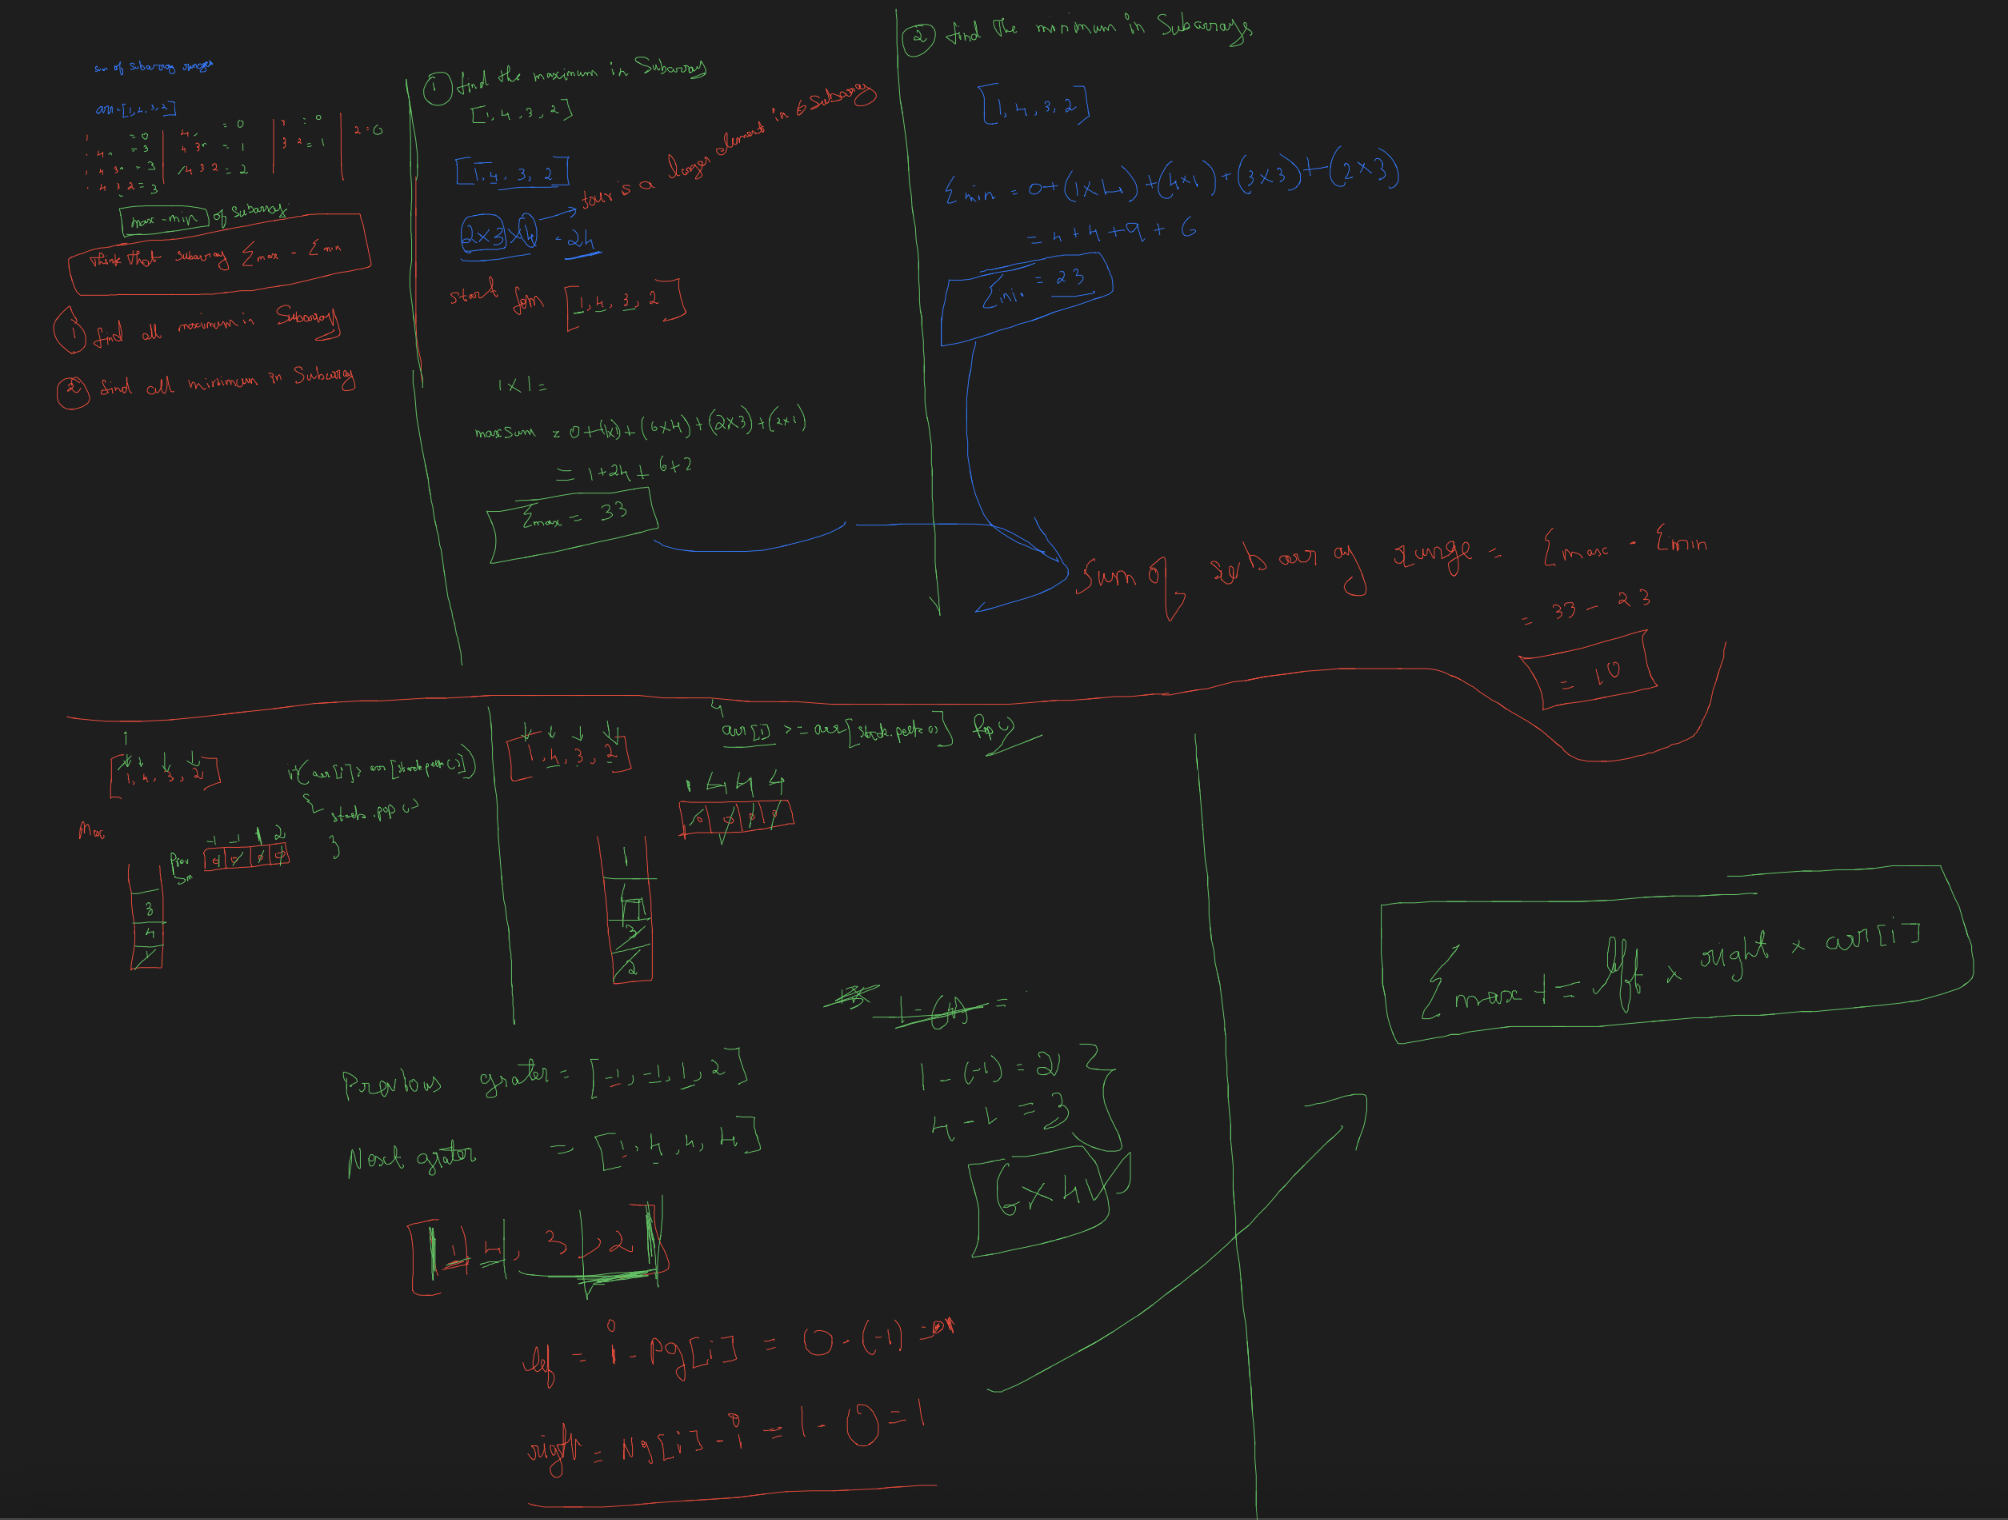 sum of subarray ranges
arr=[1,4,3,2]
1 = 0
1 4 = 3
1 4 3 = 3
1 4 3 2 = 3
4 = 0
4 3 = 1
4 3 2 = 2
3 = 0
3 2 = 1
2 = 0
max - min of subarray
Think that subarray Σmax - Σmin
① find all maximum in Subarray
② find all minimum in Subarray
① find the maximum in Subarray
[1, 4, 3, 2]
[1, 4, 3, 2]
four is a larger element in 6 Subarray
2x3 x 4 = 24
start fom [1, 4, 3, 2]
1 x 1 =
maxSum = 0+(1x1)+(6x4)+(2x3)+(2x1)
= 1+24+6+2
Σmax = 33
② find The minimum in Subarrays
[1, 4, 3, 2]
Σmin = 0+(1x4)+(4x1)+(3x3)+(2x3)
= 4+4+9+6
Σmin = 23
Sum of subarray range = Σmax - Σmin
= 33 - 23
= 10
[1, 4, 3, 2]
if(arr[i]>arr[stack.peek()])
{
stack.pop()
}
Max
-1 -1 1 2
0 0 0 0
3
4
1
[1, 4, 3, 2]
4
arr[i] >= arr[stack.peek()] Pop()
1 4 4 4
0 0 0 0
1
3
2
1-(4) =
Previous grater = [-1, -1, 1, 2]
Next grater = [1, 4, 4, 4]
1 - (-1) = 2
4 - 1 = 3
6x4
[1, 4, 3, 2]
lef = i - Pg[i] = 0 - (-1) =
right = Ng[i] - i = 1 - 0 = 1
Σmax += lft x right x arr[i]